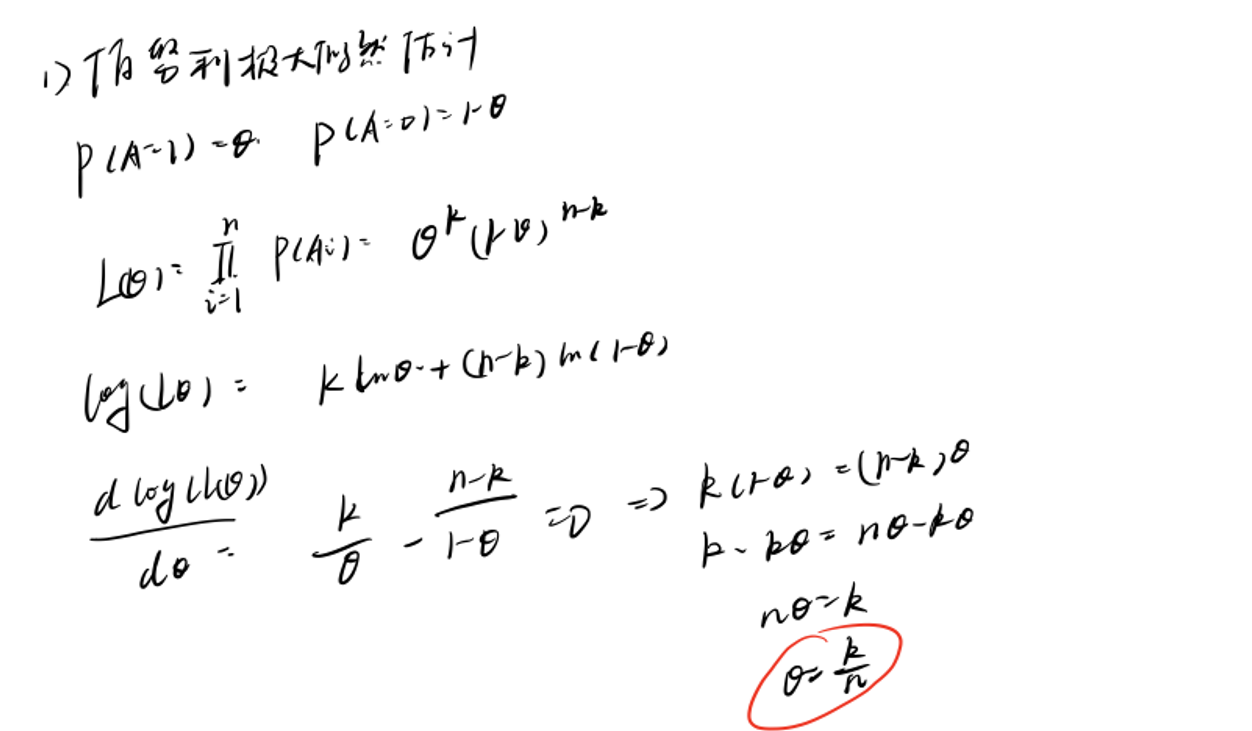 1) 伯努利极大似然估计
P(A=1)=θ. P(A=0)=1-θ
L(θ)= ∏ᵢ₌₁ⁿ P(Ai)= θᵏ(1-θ)ⁿ⁻ᵏ
log(Lθ)= k lnθ + (n-k) ln(1-θ)
d log(L(θ))/dθ = k/θ - (n-k)/(1-θ) =0 => k(1-θ)=(n-k)θ
k-kθ=nθ-kθ
nθ=k
θ=k/n